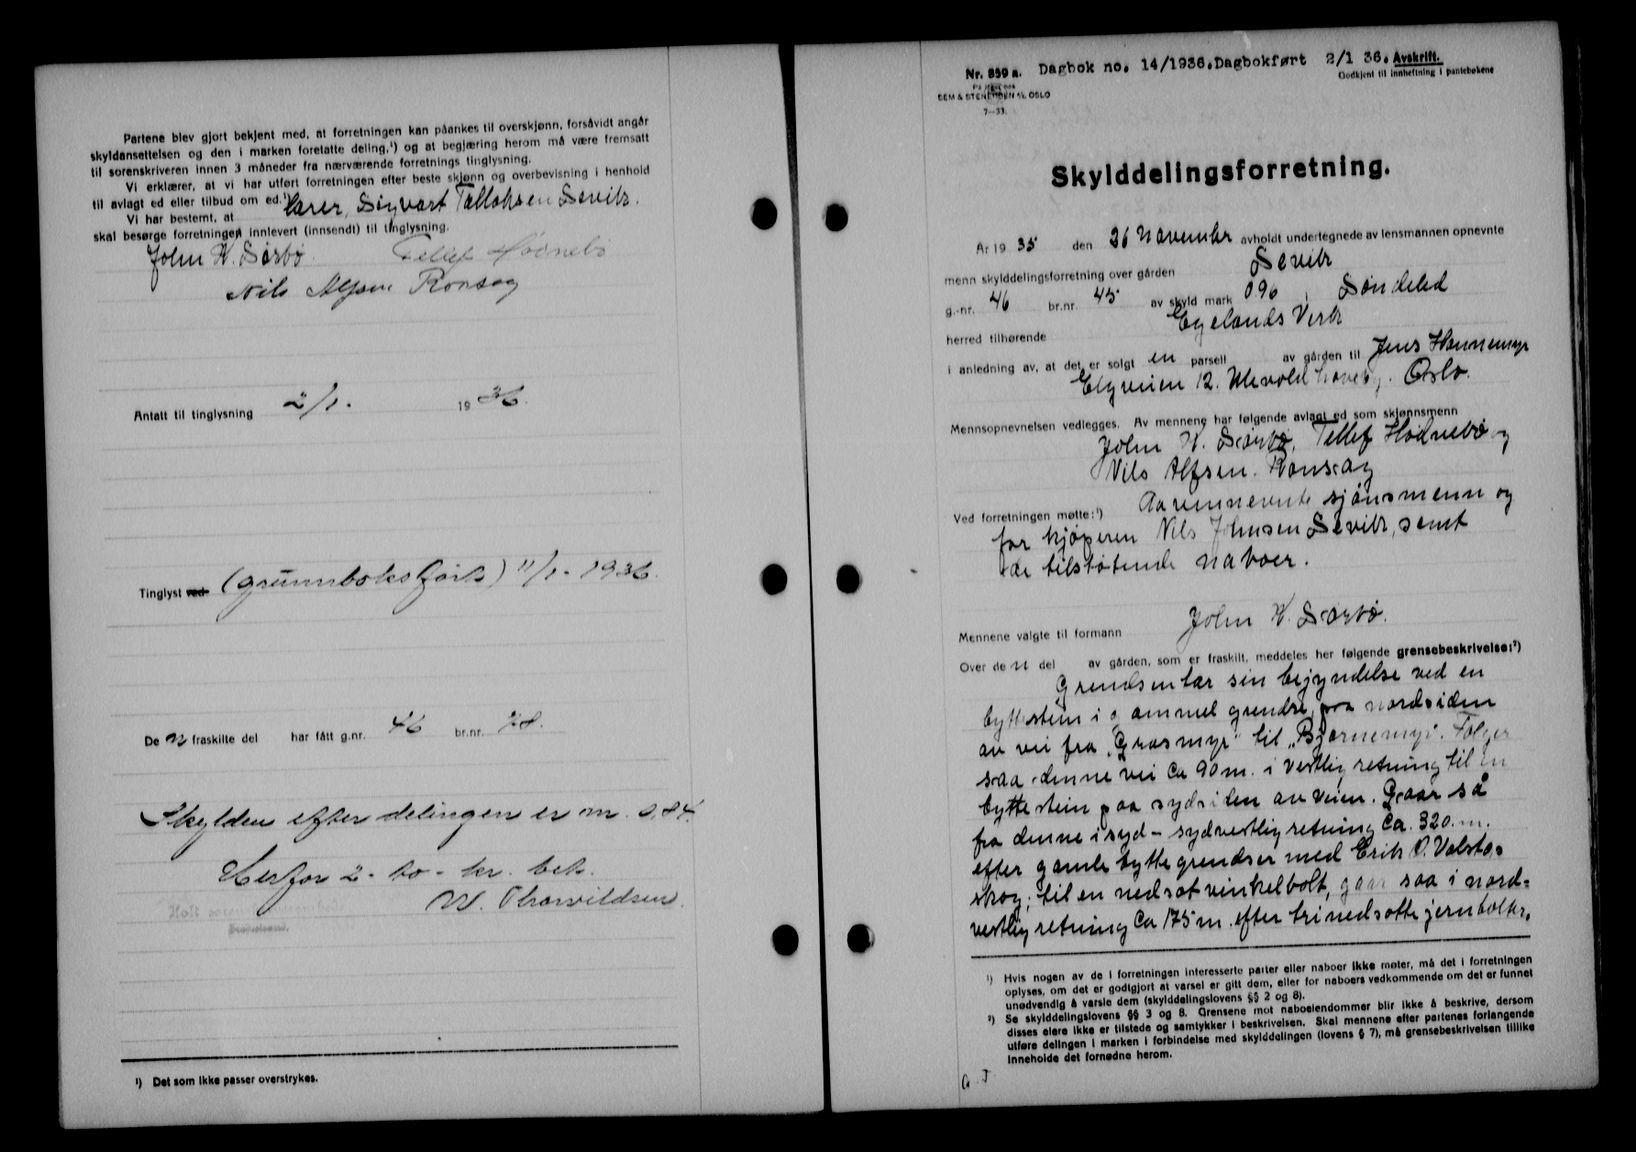 Partene blev gjort bekjent med, at forretningen kan påankes til overskjønn, forsåvidt angår
skyldansettelsen og den i marken foretatte deling,¹) og at begjæring herom må være fremsatt
til sorenskriveren innen 3 måneder fra nærværende forretnings tinglysning.
Vi erklærer, at vi har utført forretningen efter beste skjønn og overbevisning i henhold
til avlagt ed eller tilbud om ed.¹)
Vi har bestemt, at Lærer, Sigvart Tallaksen Sevik.
skal besørge forretningen innlevert (innsendt) til tinglysning.
John H. Sørbø. Tellef Hødnebø
Nils Alfsen Ronsag
Antatt til tinglysning 2/1. 1936.
Tinglyst ved (grunnboksført) 11/1 - 1936.
De n fraskilte del har fått g.nr. 46 br.nr. 78.
Skylden efter delingen er m. 0,84.
Herfor 2 - to - kr. bet.
Det som ikke passer overstrykes.
Nr. 859 a. Dagbok no. 14/1936. Dagbokført 2/1 36. Avskrift.
Godkjent til innheftning i pantebøkene
SEM & STENERSEN A/S, OSLO
7—33.
Skylddelingsforretning.
År 1935 den 26 November avholdt undertegnede av lensmannen opnevnte
menn skylddelingsforretning over gården Sevik
g.-nr. 46 br.nr. 45 av skyld mark 0 90, Søndeled
herred tilhørende Egelands Verk
i anledning av, at det er solgt en parsell av gården til Jens Hannemyr
Elgveien 12. Ulevold haveby. Oslo.
Mennsopnevnelsen vedlegges. Av mennene har følgende avlagt ed som skjønnsmenn
John H. Sørbø, Tellef Hødnebø og
Nils Alfsen. Ronsag
Ved forretningen møtte:¹) sjønsmenn og
for kjøperen Nils Johnsen Sevik, samt
de tilstøtende naboer.
Mennene valgte til formann John H. Sørbø.
Over de n del av gården, som er fraskilt, meddeles her følgende grensebeskrivelse:²)
Grendsen tar sin begyndelse ved en
byttestein i gammel grendse, paa nordsiden
av vei fra „Græsmyr" til „Bjørnemyr". Følger
saa denne vei Ca 90 m. i vestlig retning til en
byttestein paa sydsiden av veien. Gaar så
fra denne i syd - sydvestlig retning Ca. 320. m.
efter gamle byttegrendser med Erik O. Valstø.
skog; til en nedsat vinkelbolt, gaar saa i nord=
vestlig retning Ca 175 m. efter tri nedsatte jernbolter.
¹) Hvis nogen av de i forretningen interesserte parter eller naboer ikke møter, må det i forretningen
oplyses, om det er godtgjort at varsel er gitt dem, eller for naboers vedkommende om det er funnet
unødvendig å varsle dem (skylddelingslovens §§ 2 og 8).
²) Se skylddelingslovens §§ 3 og 8. Grensene mot naboeiendommer blir ikke å beskrive, dersom
disses eiere ikke er tilstede og samtykker i beskrivelsen. Skal mennene efter partenes forlangende
utføre delingen i marken i forbindelse med skylddelingen (lovens § 7), må grensebeskrivelsen tillike
inneholde det fornødne herom.